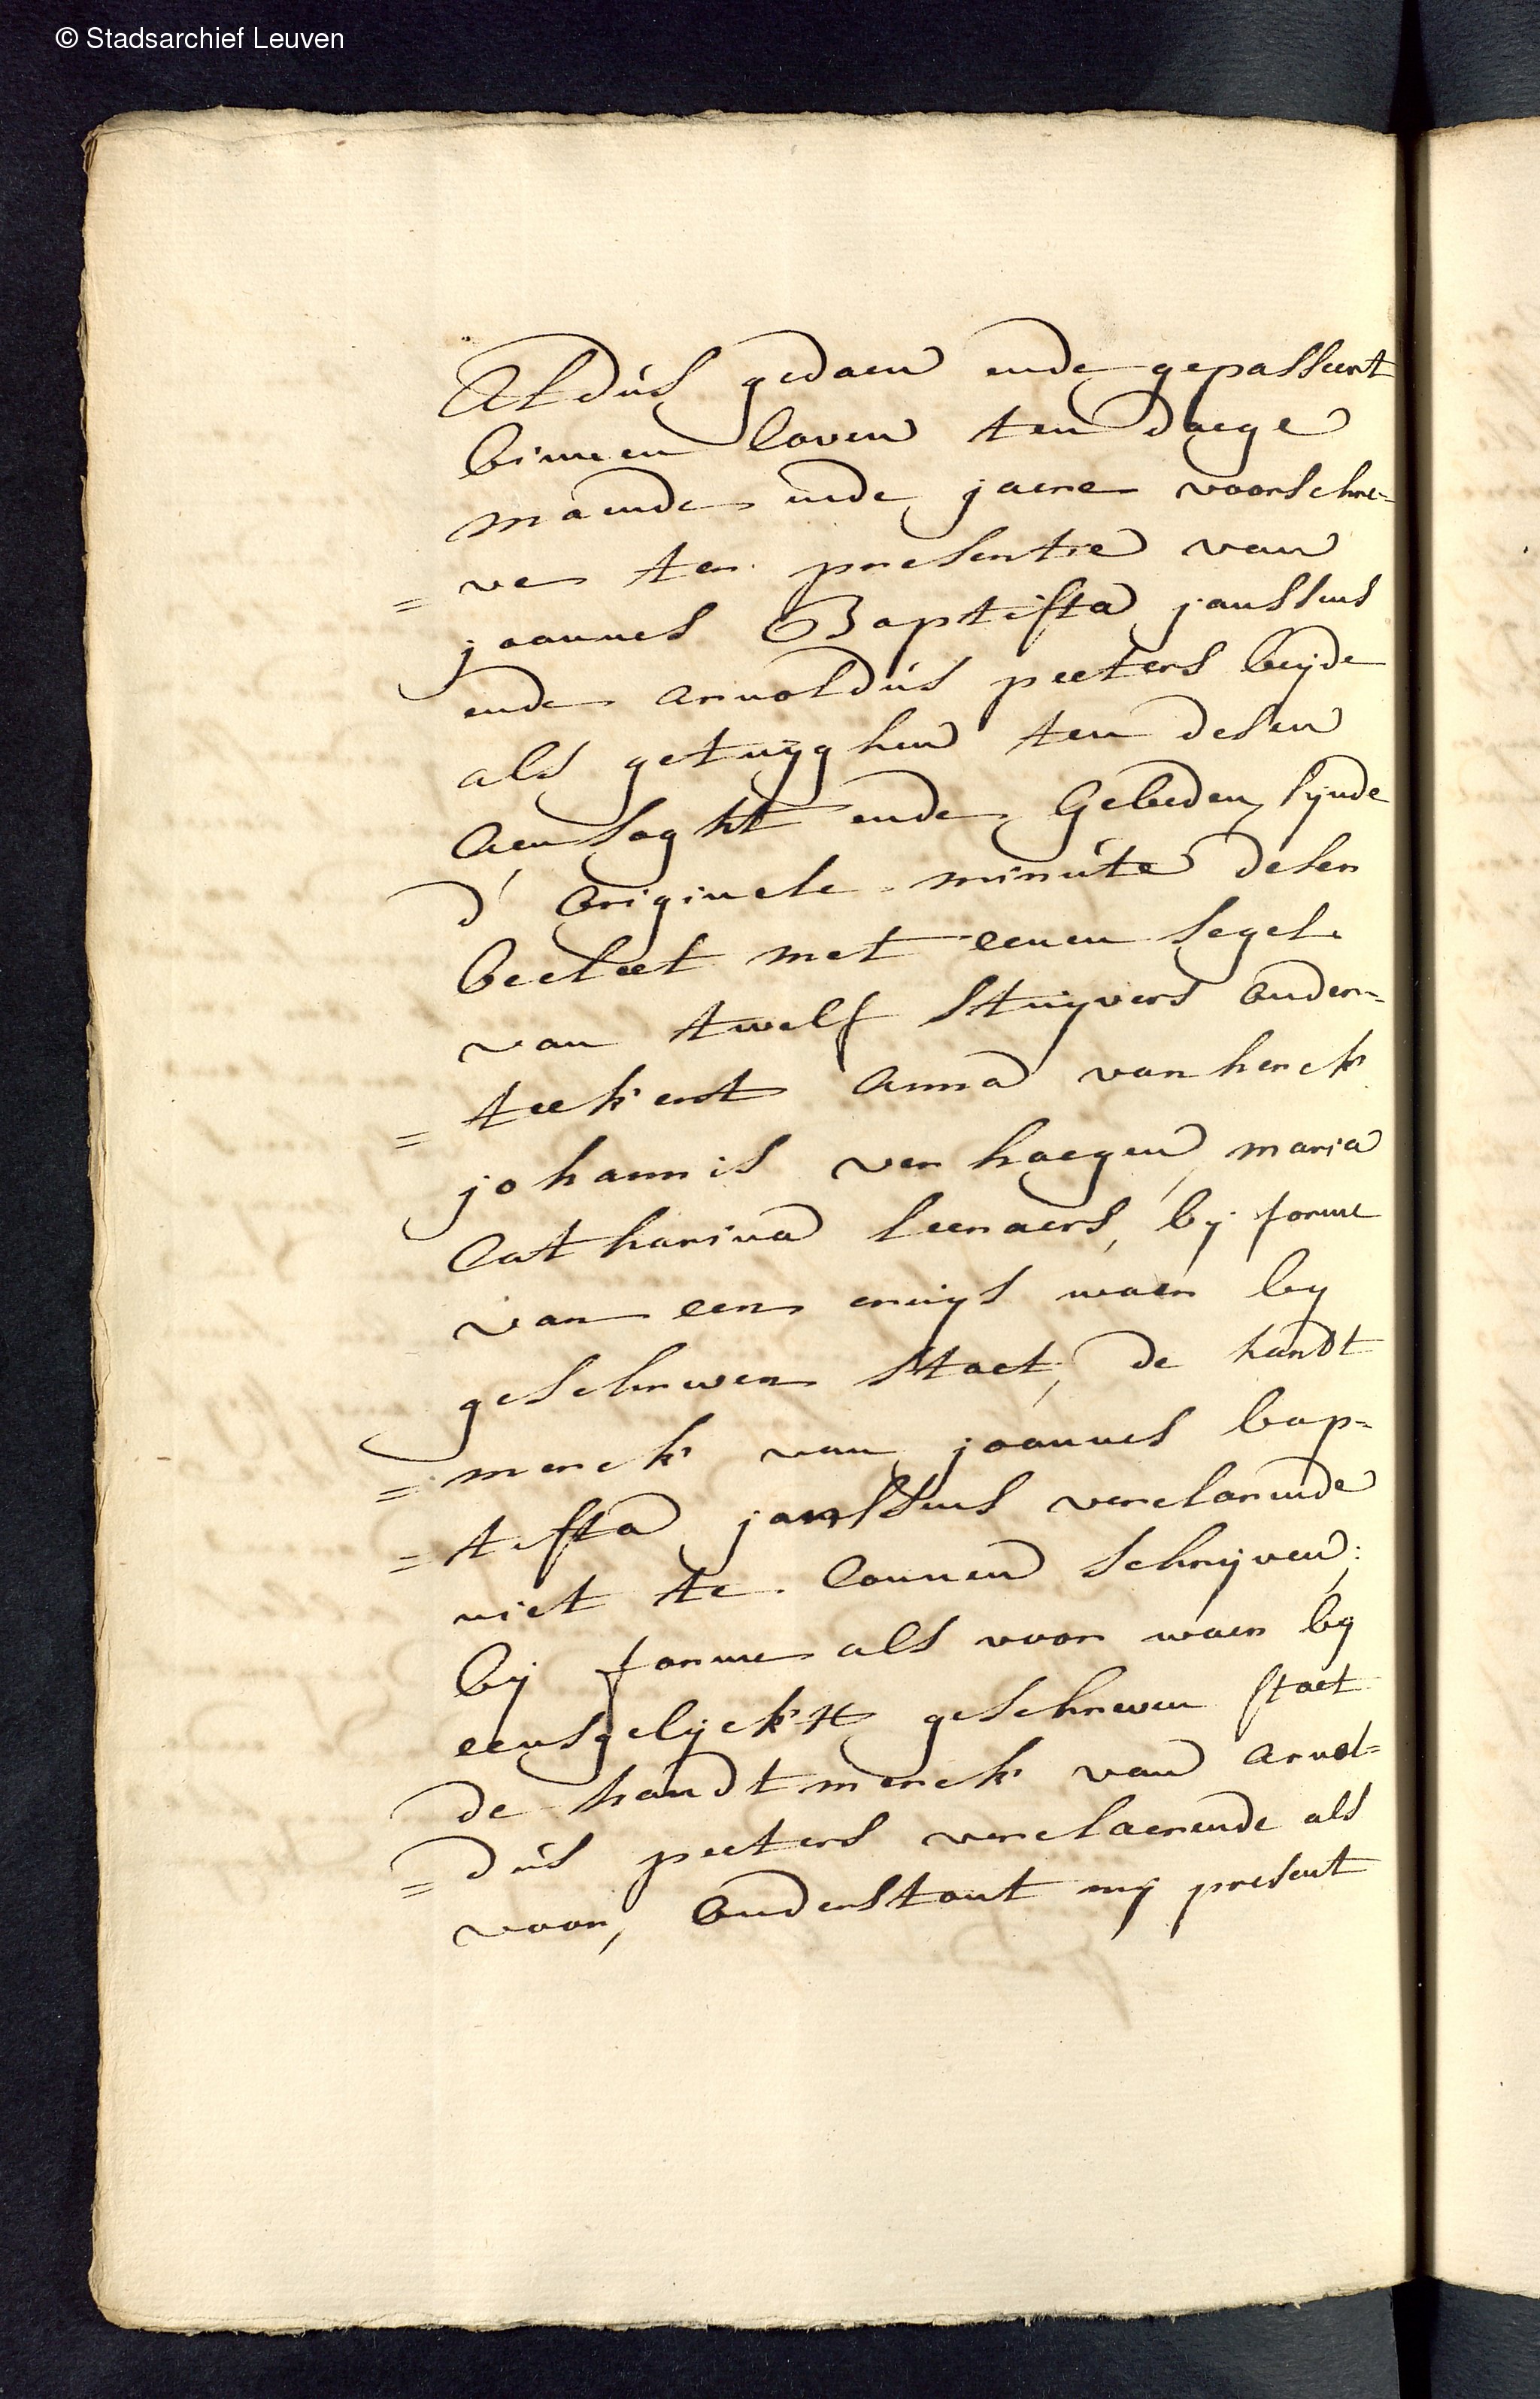 © Stadsarchief Leuven
Aldús gedaen ende gepasseert
binnen loven ten daege
maende ende jaere voorschre=
= ven ter presentie van
joannes Baptista janssens
ende arnoldús peeters beijde
als getuijghen ten desen
aensoght ende Gebeden, sijnde
d' origincle minúte desen
becleet met eenen segel
van twelf stuijvers onder=
= teekent anna van herck
johannis verhaegen, maria
Catharina leenaers, bij forme
van een cruijs waer by
geschreven staet, de handt
= merck van joannes bap=
= tista janssens verclarende
niet te connen schrijven;
bij forme als voor waer by
eensgelijckx geschreven staet
de handtmerck van arnol=
= dús peeters verclaerende als
voor, onderstont mij present